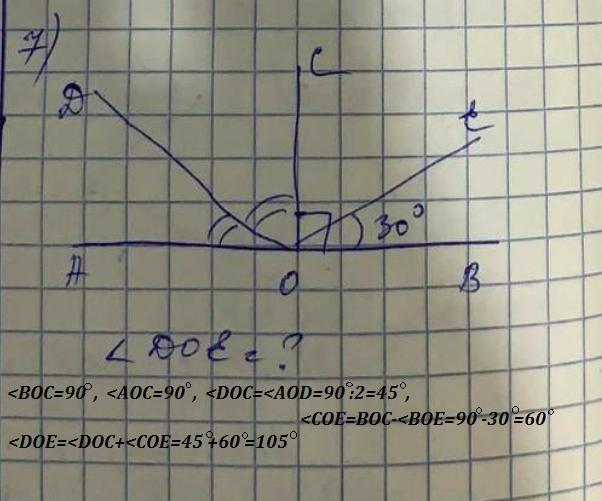 7)
C
D
E
30°
A
O
B
<DOE=?
<BOC=90°, <AOC=90°, <DOC=<AOD=90°:2=45°,
<COE=BOC-<BOE=90°-30°=60°
<DOE=<DOC+<COE=45°+60°=105°